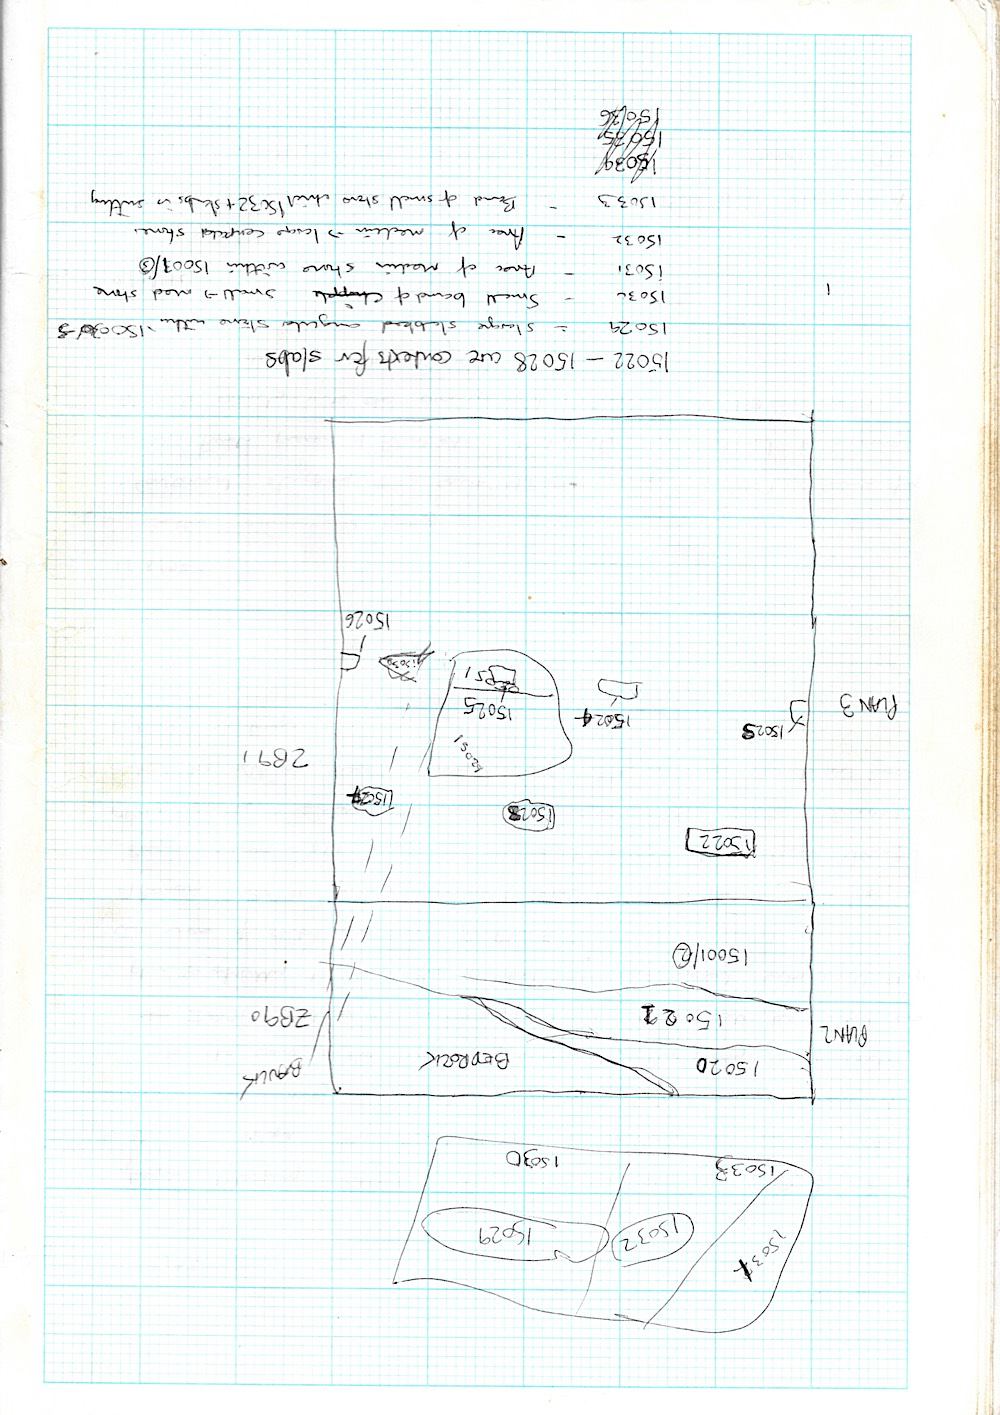 15029
15032
15031
15030
15033
BAULK
BEDROCK
15020
ZB90
15021
PLAN 2
15001/2
15022
15027
15028
ZB91
15031
15025
15024
15023
PLAN 3
15030
15026
15022 – 15028 are contexts for slabs
15029 = slabbed angular stone within 15003/5
15030 - Small band of small → med stone
15031 - Area of medium stone within 15003/5
15032 - Area of medium → large stone
15033 - Band of small stone 15032 + slabs in cutting
15034
15035
15036